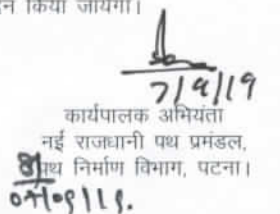 न किया जायेगा।
7/9/19
कार्यपालक अभियंता
नई राजधानी पथ प्रमंडल,
पथ निर्माण विभाग, पटना।